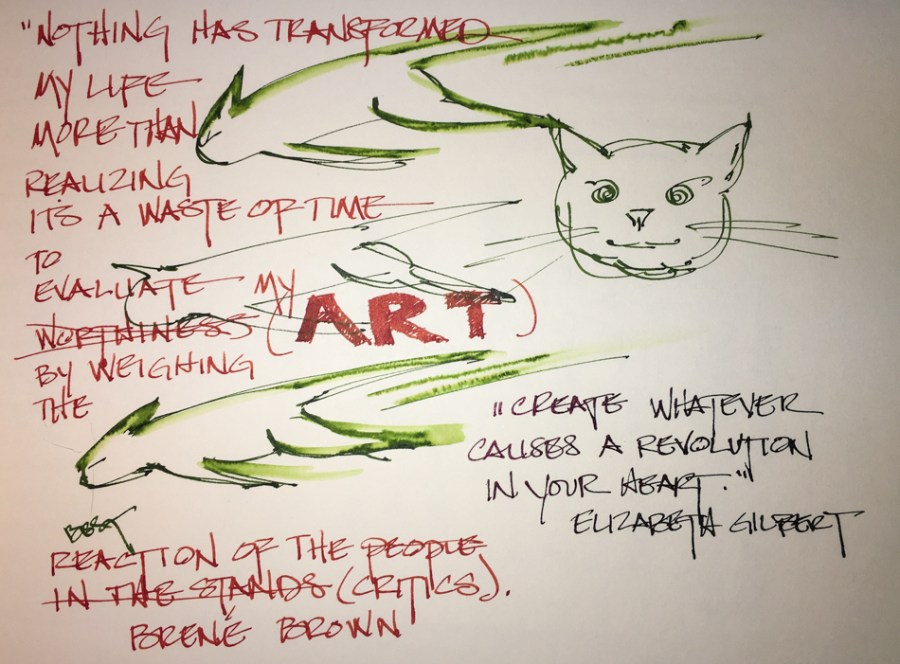 "NOTHING HAS TRANSFORMED
MY LIFE
MORE THAN
REALIZING
ITS A WASTE OF TIME
TO
EVALUATE MY
WORTHINESS (ART)
BY WEIGHING
THE
"CREATE WHATEVER
CAUSES A REVOLUTION
IN YOUR HEART."
ELIZABETH GILBERT
REACTION OF THE PEOPLE
IN THE STANDS (CRITICS).
BRENÉ BROWN